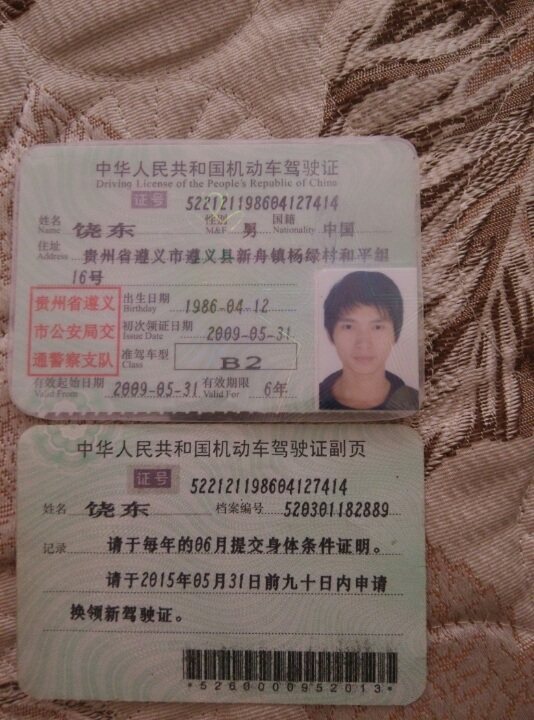 中华人民共和国机动车驾驶证
Driving License of the People's Republic of China
证号 522121198604127414
姓名 Name 饶东 性别 M&F 男 国籍 Nationality 中国
住址 Address 贵州省遵义市遵义县新舟镇杨绿村和平组
16号
贵州省遵义
市公安局交
通警察支队
出生日期 Birthday 1986-04-12
初次领证日期 Issue Date 2009-05-31
准驾车型 Class B2
有效起始日期 Valid From 2009-05-31 有效期限 Valid For 6年
中华人民共和国机动车驾驶证副页
证号 522121198604127414
姓名 饶东 档案编号 520301182889
记录 请于每年的06月提交身体条件证明。
请于2015年05月31日前九十日内申请
换领新驾驶证。
*5260000952013*